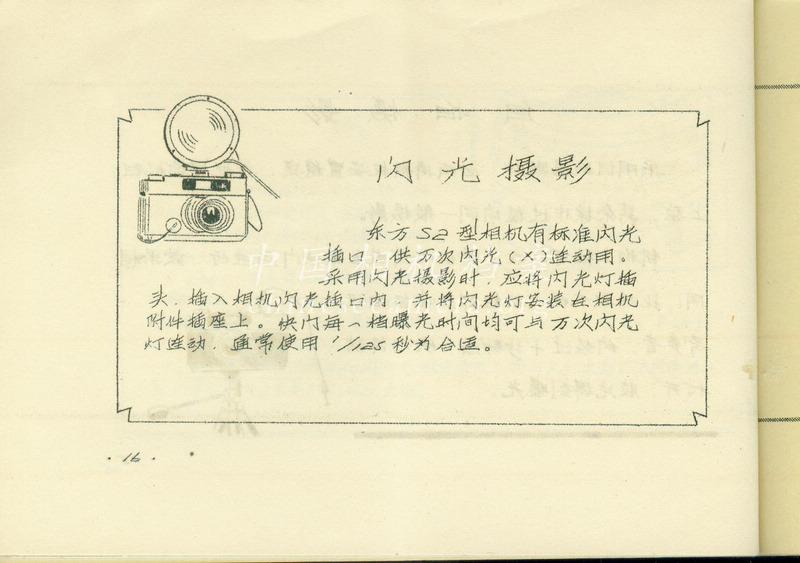 闪光摄影
东方S2型相机有标准闪光
插口，供万次闪光（X）连动用。
采用闪光摄影时，应将闪光灯插
头，插入相机闪光插口内，并将闪光灯安装在相机
附件插座上。快门每一档曝光时间均可与万次闪光
灯连动，通常使用1/125秒为合适。
·16·